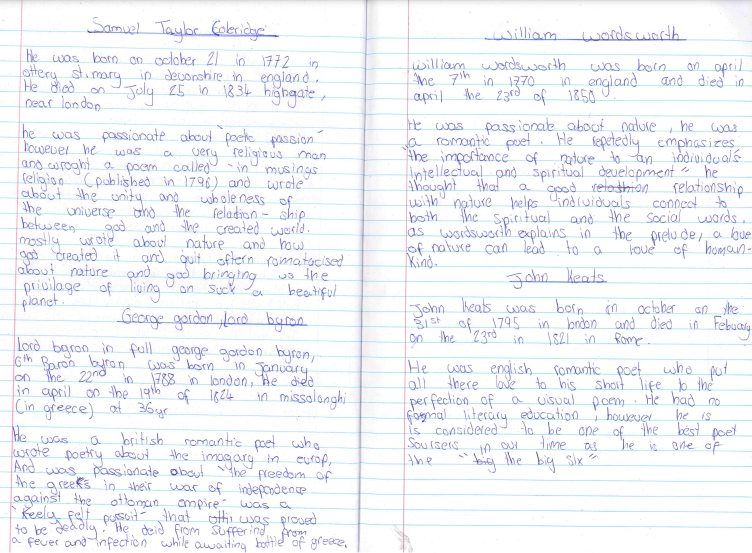 Samuel Taylor Coleridge
He was born on october 21 in 1772 in
ottery st.mary in devonshire in england.
He died on July 25 in 1834 highgate,
near london
he was passionate about "poetic passion"
however he was a very religious man
and wroght a poem called "in musings
religion (published in 1796) and wrote
about the unity and wholeness of
the universe and the relation-ship
between god and the created world.
mostly wrote about nature and how
god created it and quit oftern romatacised
about nature and god bringing us the
privilage of living on such a beatiful
planet.
George gordon, lord byron
Lord byron in full george gordon byron,
6th Baron byron was born in January
on the 22nd in 1788 in london, He died
in april on the 19th of 1824 in missolonghi
(in greece) at 36yr
He was a british romantic poet who
wrote poetry about the imagary in europ,
And was passionate about "the freedom of
the greeks in their war of independence
against the ottoman empire- was a
keely felt pursuit- that was proved
to be deadly. He deid from suffering from
a fever and infection while awaiting battle of greece.
William wordsworth
william wordsworth was born on april
the 7th in 1770 in england and died in
april the 23rd of 1850.
He was passionate about nature, he was
a romantic poet. He repetedly emphasizes
"the importance of nature to an individuals
intellectual and spiritual development" he
thought that a good relationship
with nature helps individuals connect to
both the spiritual and the social words.
as wordsworth explains in the prelude, a love
of nature can lead to a love of human-
kind.
John Keats
John keats was born in october on the
31st of 1795 in london and died in Febuary
on the 23rd in 1821 in Rome.
He was english romantic poet who put
all there love to his short life to the
perfection of a visual poem. He had no
formal literary education, however he is
is considered to be one of the best poet
in our time as he is one of
the "big the big six"